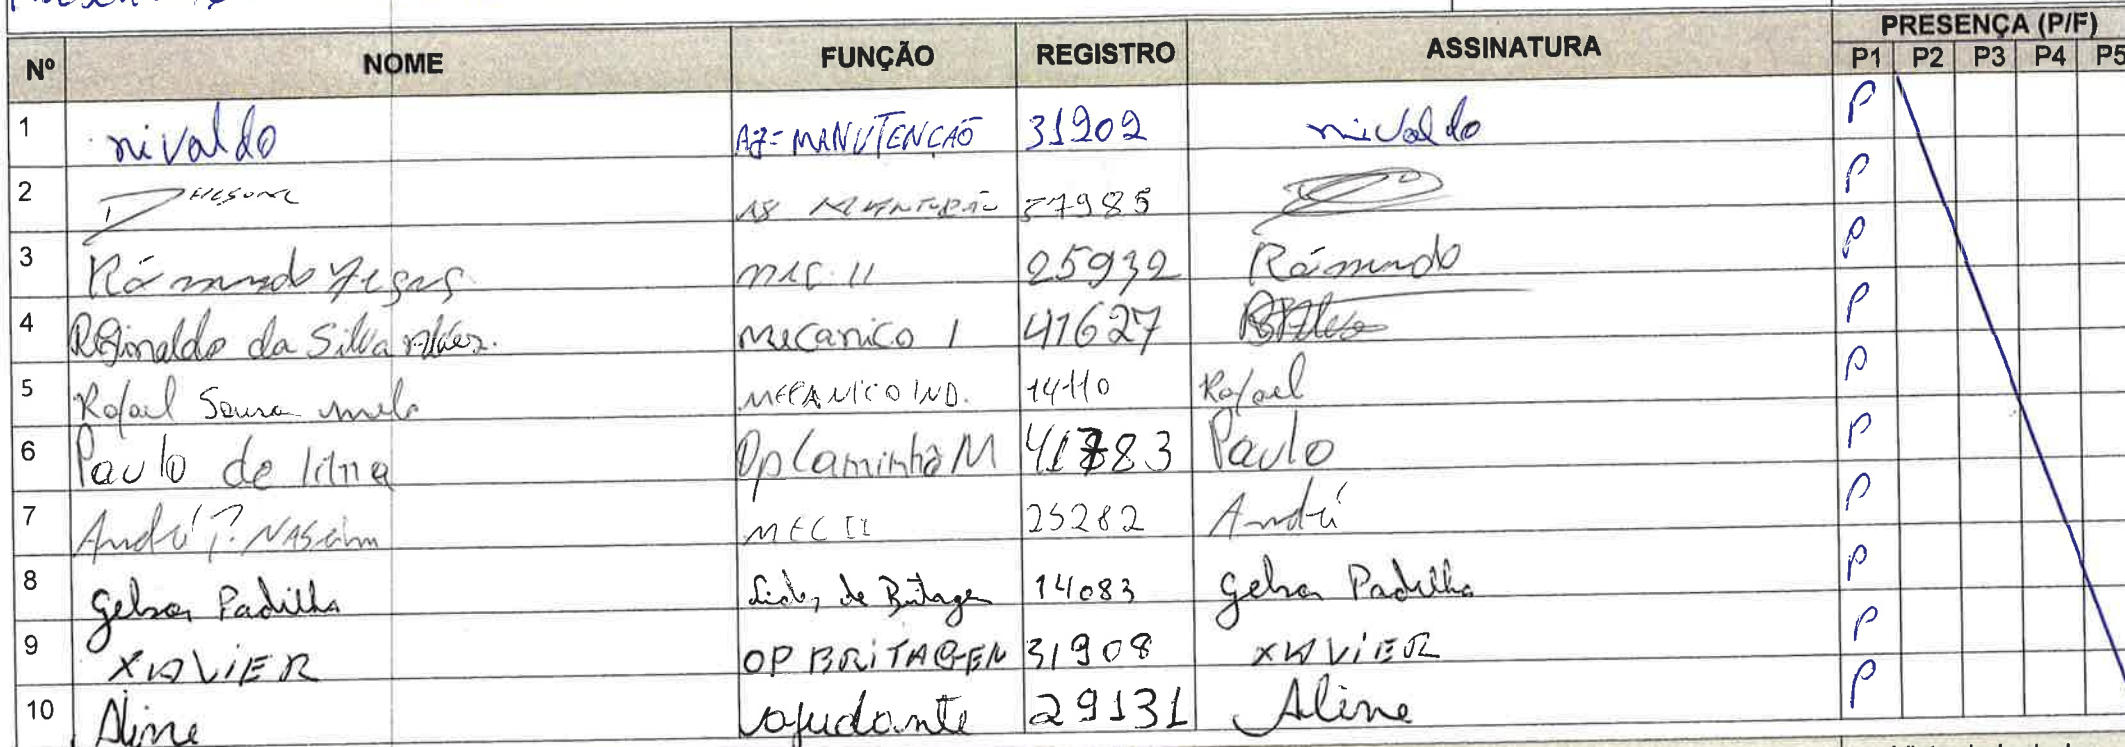 PRESENÇA (P/F)
Nº NOME FUNÇÃO REGISTRO ASSINATURA P1 P2 P3 P4 P5
1 nivaldo AJ= MANUTENCAO 31902 nivaldo P
2 P
3 Rámundo MEC II 25932 Rámundo P
4 Reginaldo da Silva mecanico I 41627 P
5 Rafael Souza melo MECANICO IND. 14110 Rafael P
6 Paulo de lima Op CaminhãM 41783 Paulo P
7 André MEC II 25282 André P
8 Gelson Padilha Lider de Britagem 14083 Gelson Padilha P
9 XAViER OP BRiTAGEN 31908 XAViER P
10 Aline ajudante 29131 Aline P